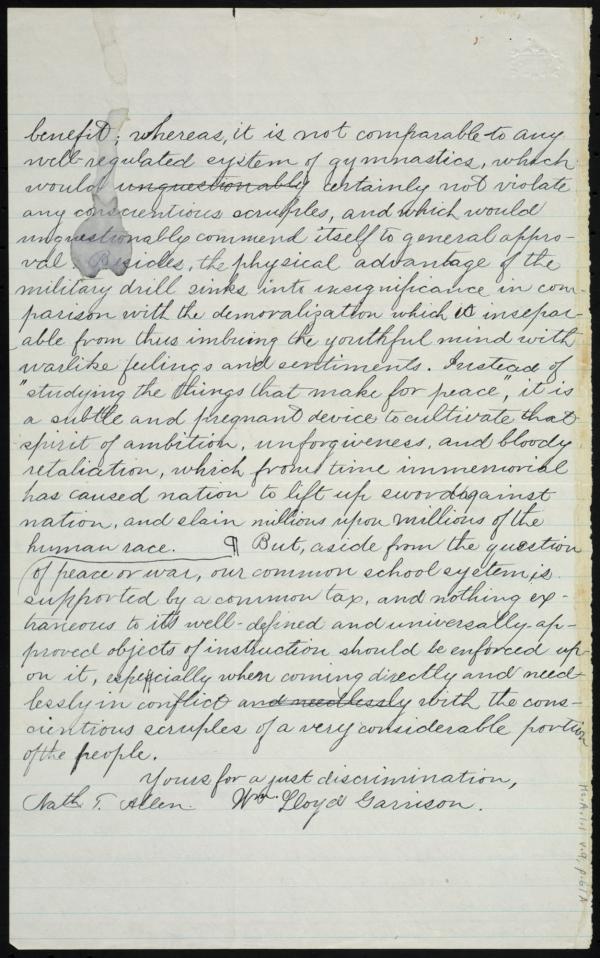 benefit; whereas, it is not comparable to any
well-regulated system of gymnastics, which
would unquestionably certainly not violate
any conscientious scruples, and which would
unquestionably commend itself to general appro-
val. Besides, the physical advantage of the
military drill sinks into insignificance in com-
parison with the demoralization which is insepar-
able from thus imbuing the youthful mind with
warlike feelings and sentiments. Instead of
"studying the things that make for peace", it is
a subtle and pregnant device to cultivate that
spirit of ambition, unforgiveness, and bloody
retaliation, which from time immemorial
has caused nation to lift up sword against
nation, and slain millions upon millions of the
human race. ¶ But, aside from the question
of peace or war, our common school system is
supported by a common tax, and nothing ex-
traneous to its well-defined and universally-ap-
proved objects of instruction should be enforced up-
on it, especially when coming directly and need-
lessly in conflict and needlessly with the cons-
cientious scruples of a very considerable portion
of the people.
Yours for a just discrimination,
Nath. T. Allen. Wm. Lloyd Garrison.
Ms.A.1.1 v.9, p.61A